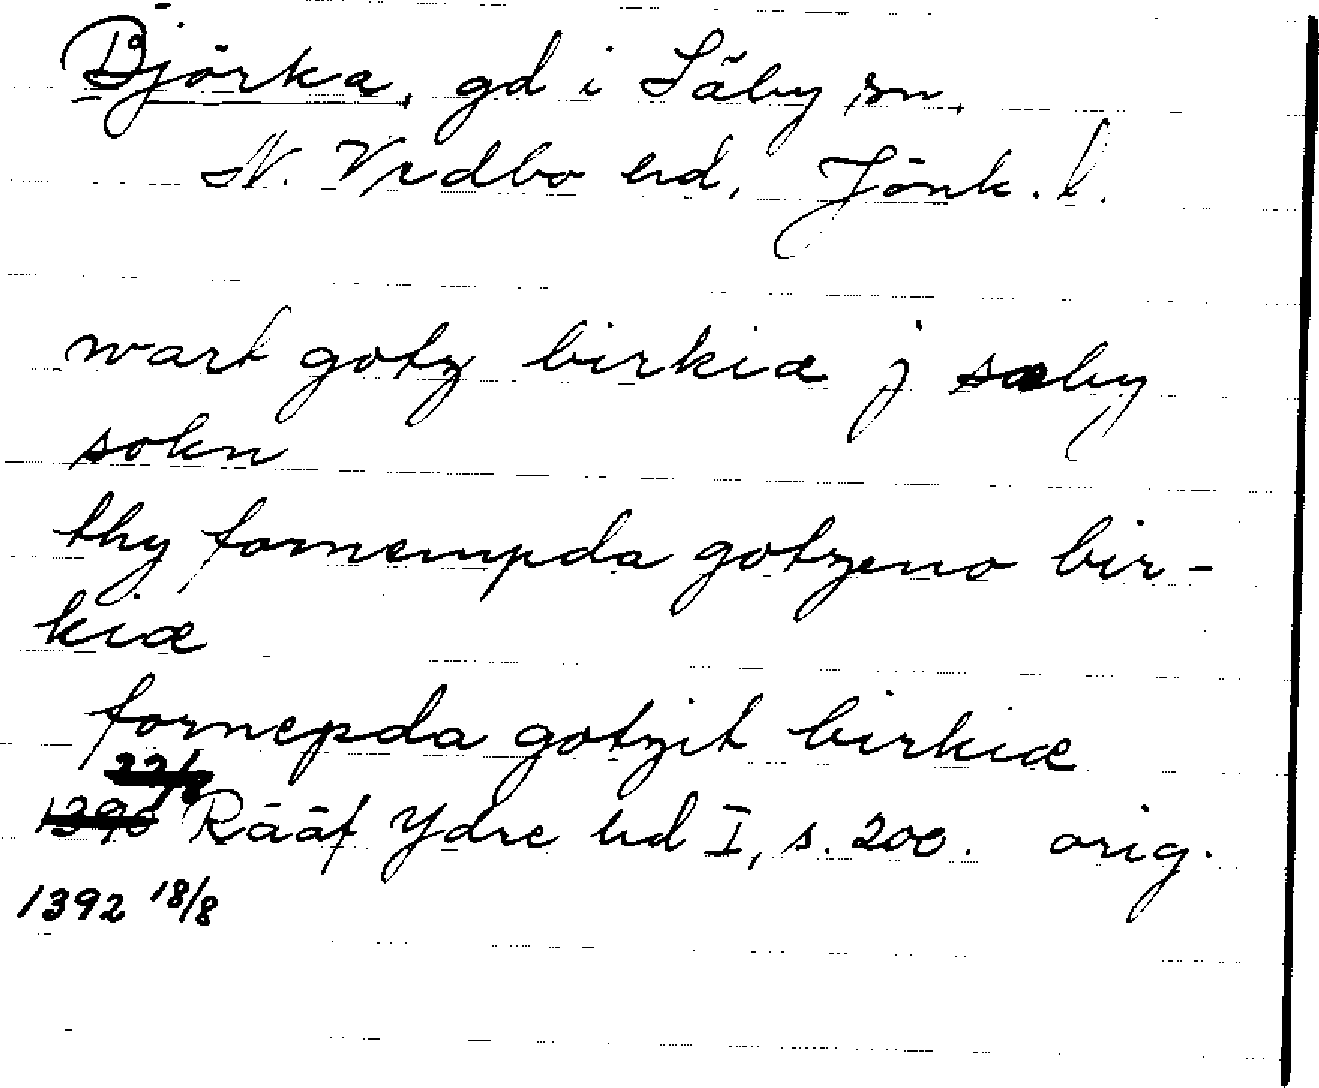 Björka, gd i Säby sn,
N. Vedbo hd, Jönk. l.
wart gotz birkiæ j sæby
sokn
thy fornempda gotzeno bir-
kiæ
fornepda gotzit birkiæ
22/8
1390 Rääf Ydre hd I, s. 200. orig.
1392 18/8